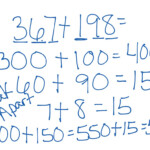 367+198=
300 + 100 = 40
60 + 90 = 15
Apart
7+8=15
00+150=550+15=5